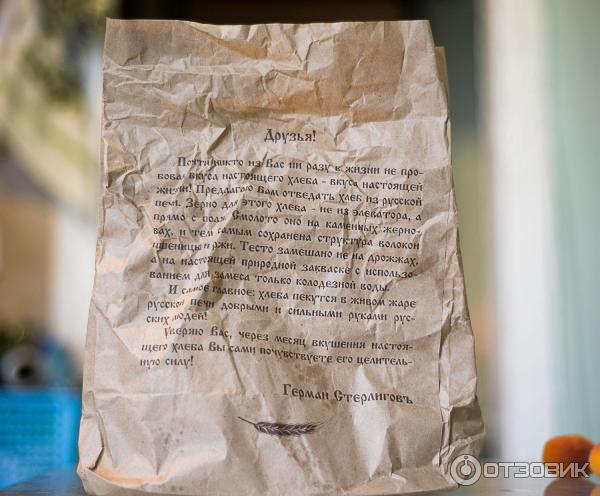 Друзья!
Почти никто из Вас ни разу в жизни не про-
бовал вкуса настоящего хлеба - вкуса настоящей
жизни! Предлагаю Вам отведать хлеб из русской
печи. Зерно для этого хлеба - не из элеватора, а
прямо с поля. Смолото оно на каменных жерно-
вах, и тем самым сохранена структура волокон
пшеницы и ржи. Тесто замешано не на дрожжах,
а на настоящей природной закваске с использо-
ванием для замеса только колодезной воды.
И самое главное: хлеба пекутся в живом жаре
русской печи добрыми и сильными руками рус-
ских людей!
Уверяю Вас, через месяц вкушения настоя-
щего хлеба Вы сами почувствуете его целитель-
ную силу!
Герман Стерлиговъ
ОТЗОВИК